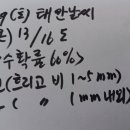 9 (토) 태안날씨
온) 13/16도
강수확률 60%)
(흐리고 비 1~5mm)
( 〃 1mm 내외)